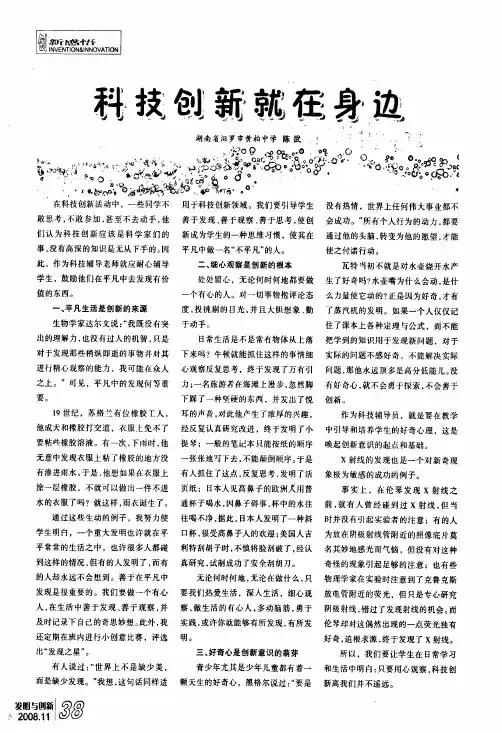 新感悟
INVENTION&INNOVATION
科技创新就在身边
湖南省汨罗市黄柏中学 陈武
在科技创新活动中，一些同学不
敢思考，不敢参加，甚至不去动手，他
们认为科技创新应该是科学家们的
事，没有高深的知识是无从下手的。因
此，作为科技辅导老师就应耐心辅导
学生，鼓励他们在平凡中去发现有价
值的东西。
一、平凡生活是创新的来源
生物学家达尔文说：“我既没有突
出的理解力，也没有过人的机智，只是
对于发现那些稍纵即逝的事物并对其
进行精心观察的能力，我可能在众人
之上。”可见，平凡中的发现何等重
要。
19世纪，苏格兰有位橡胶工人，
他成天和橡胶打交道，衣服上免不了
要粘些橡胶溶液。有一次，下雨时，他
无意中发现衣服上粘了橡胶的地方没
有渗进雨水。于是，他想如果在衣服上
涂一层橡胶，不就可以做出一件不进
水的衣服了吗？就这样，雨衣诞生了。
通过这些生动的例子，我努力使
学生明白，一个重大发明也许就在平
平常常的生活之中，也许很多人都碰
到这样的情况，但有的人发明了，而有
的人却永远不会想到。善于在平凡中
发现是很重要的。我们要做一个有心
人，在生活中善于发现、善于观察，并
及时记录下自己的奇思妙想。此外，我
还定期在班内进行小创意比赛，评选
出“发现之星”。
有人说过：“世界上不是缺少美，
而是缺少发现。”我想，这句话同样适
用于科技创新领域。我们要引导学生
善于发现、善于观察、善于思考，使创
新成为学生的一种思维习惯，使其在
平凡中做一名“不平凡”的人。
二、细心观察是创新的根本
处处留心，无论何时何地都要做
一个有心的人。对一切事物抱评论态
度，投挑剔的目光，并且大胆想象，勤
于动手。
日常生活是不是常有物体从上落
下来吗？牛顿就能抓住这样的事情细
心观察反复思考，终于发现了万有引
力；一名旅游者在海滩上漫步，忽然脚
下踩了一种坚硬的东西，并发出了悦
耳的声音，对此他产生了浓厚的兴趣，
经反复认真研究改进，终于发明了小
提琴；一般的笔记本只能按纸的顺序
一张张地写下去，不能颠倒顺序，于是
有人抓住了这点，反复思考，发明了活
页纸；日本人见高鼻子的欧洲人用普
通杯子喝水，因鼻子碍事，杯中的水往
往喝不净，据此，日本人发明了一种斜
口杯，很受高鼻子人的欢迎；美国人吉
利特刮胡子时，不慎将脸刮破了，经认
真研究，试制成功了安全刮胡刀。
无论何时何地，无论在做什么，只
要我们热爱生活，深入生活，细心观
察，做生活的有心人，多动脑筋，勇于
实践，或许你就能够有所发现、有所发
明。
三、好奇心是创新意识的萌芽
青少年尤其是少年儿童都有着一
颗天生的好奇心，黑格尔说过：“要是
没有热情，世界上任何伟大事业都不
会成功。”所有个人行为的动力，都要
通过他的头脑，转变为他的愿望，才能
使之付诸行动。
瓦特当初不就是对水壶烧开水产
生了好奇吗？水壶嘴为什么会动，是什
么力量使它动的？正是因为好奇，才有
了蒸汽机的发明。如果一个人仅仅记
住了课本上各种定理与公式，而不能
把学到的知识用于发现新问题，对于
实际的问题不感好奇、不能解决实际
问题，那他永远顶多是高分低能儿。没
有好奇心，就不会勇于探索，不会善于
创新。
作为科技辅导员，就是要在教学
中引导和培养学生的好奇心理，这是
唤起创新意识的起点和基础。
X射线的发现也是一个对新奇现
象极为敏感的成功的例子。
事实上，在伦琴发现X射线之
前，就有人曾经碰到过X射线，但当
时并没有引起实验者的注意；有的人
为放在阴极射线管附近的照像底片莫
名其妙地感光而气恼，但没有对这种
奇怪的现象引起足够的注意；也有些
物理学家在实验时注意到了克鲁克斯
放电管附近的荧光，但只是专心研究
阴极射线，错过了发现射线的机会，而
伦琴却对这偶然出现的一点荧光独有
好奇，追根求源，终于发现了X射线。
所以，我们要让学生在日常学习
和生活中明白：只要用心观察，科技创
新离我们并不遥远。
发明与创新
2008.11 38